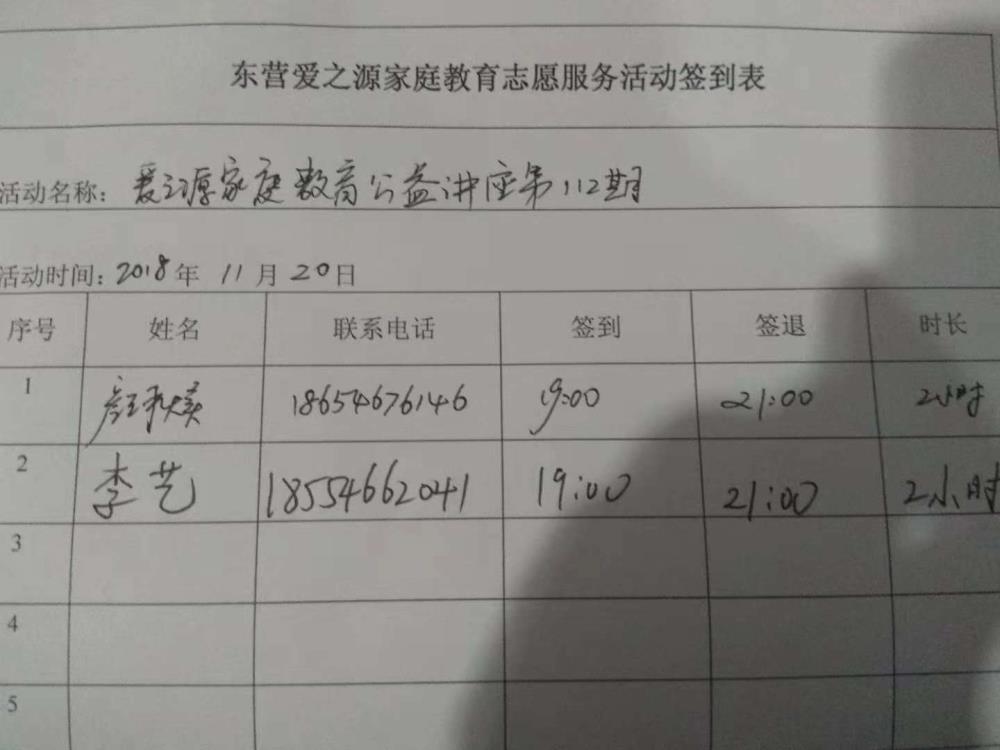 东营爱之源家庭教育志愿服务活动签到表
活动名称：爱之源家庭教育公益讲座第112期
活动时间：2018年 11月20日
序号 姓名 联系电话 签到 签退 时长
1 18654676146 19:00 21:00 2小时
2 李艺 18554662041 19:00 21:00 2小时
3
4
5